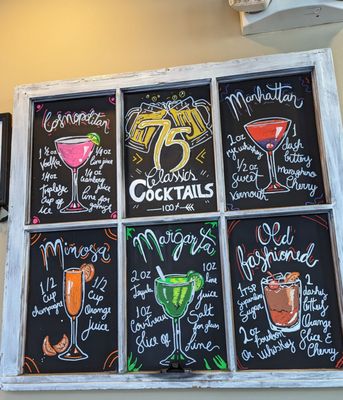 Cosmopolitan
1 ½ oz
vodka
¼ oz
lime juice
¼ oz
Triple
sec
¼ oz
cranberry
juice
lime
for
garnish
75
Classics
COCKTAILS
Manhattan
2 oz
rye whisky
½ oz
sweet
Vermouth
1
dash
bitters
Maraschino
Cherry
Mimosa
1/2
Cup
champagne
1/2
Cup
Orange
Juice
Margarita
2 oz
Tequila
1 oz
Cointreau
Slice of
lime
1 oz
lime
juice
Salt
for glass
Old
fashioned
1 Tsp
sugar
2 oz
bourbon
or Whisky
2
dashes
bitters
Orange
Slice
& Cherry